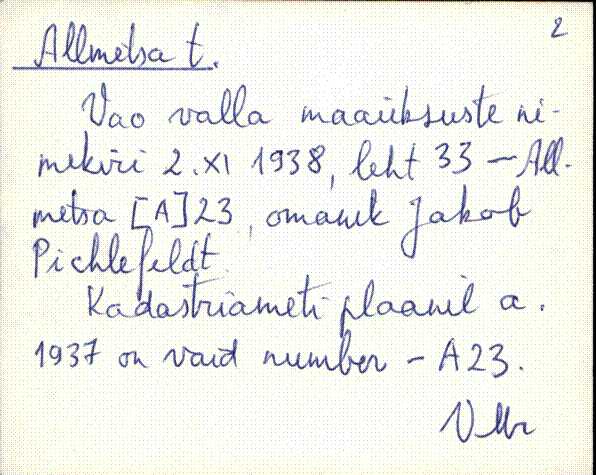 2
Allmetsa t.
Vao valla maaüksuste ni-
mekiri 2. XI 1938, leht 33 – All-
metsa [A]23, omanik Jakob
Pichlefeldt.
Kadastriameti plaanil a.
1937 on vaid number – A23.